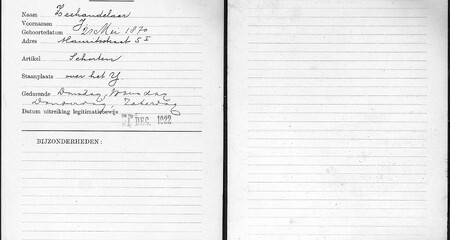 Naam Zeehandelaar
Voornamen J.
Geboortedatum 21 Mei 1870
Adres Mauritsstraat 5 I
Artikel Schorten
Staanplaats over het Y
Gedurende Dinsdag, Woensdag
Donderdag, Zaterdag
Datum uitreiking legitimatiebewijs DEC. 1922
BIJZONDERHEDEN: